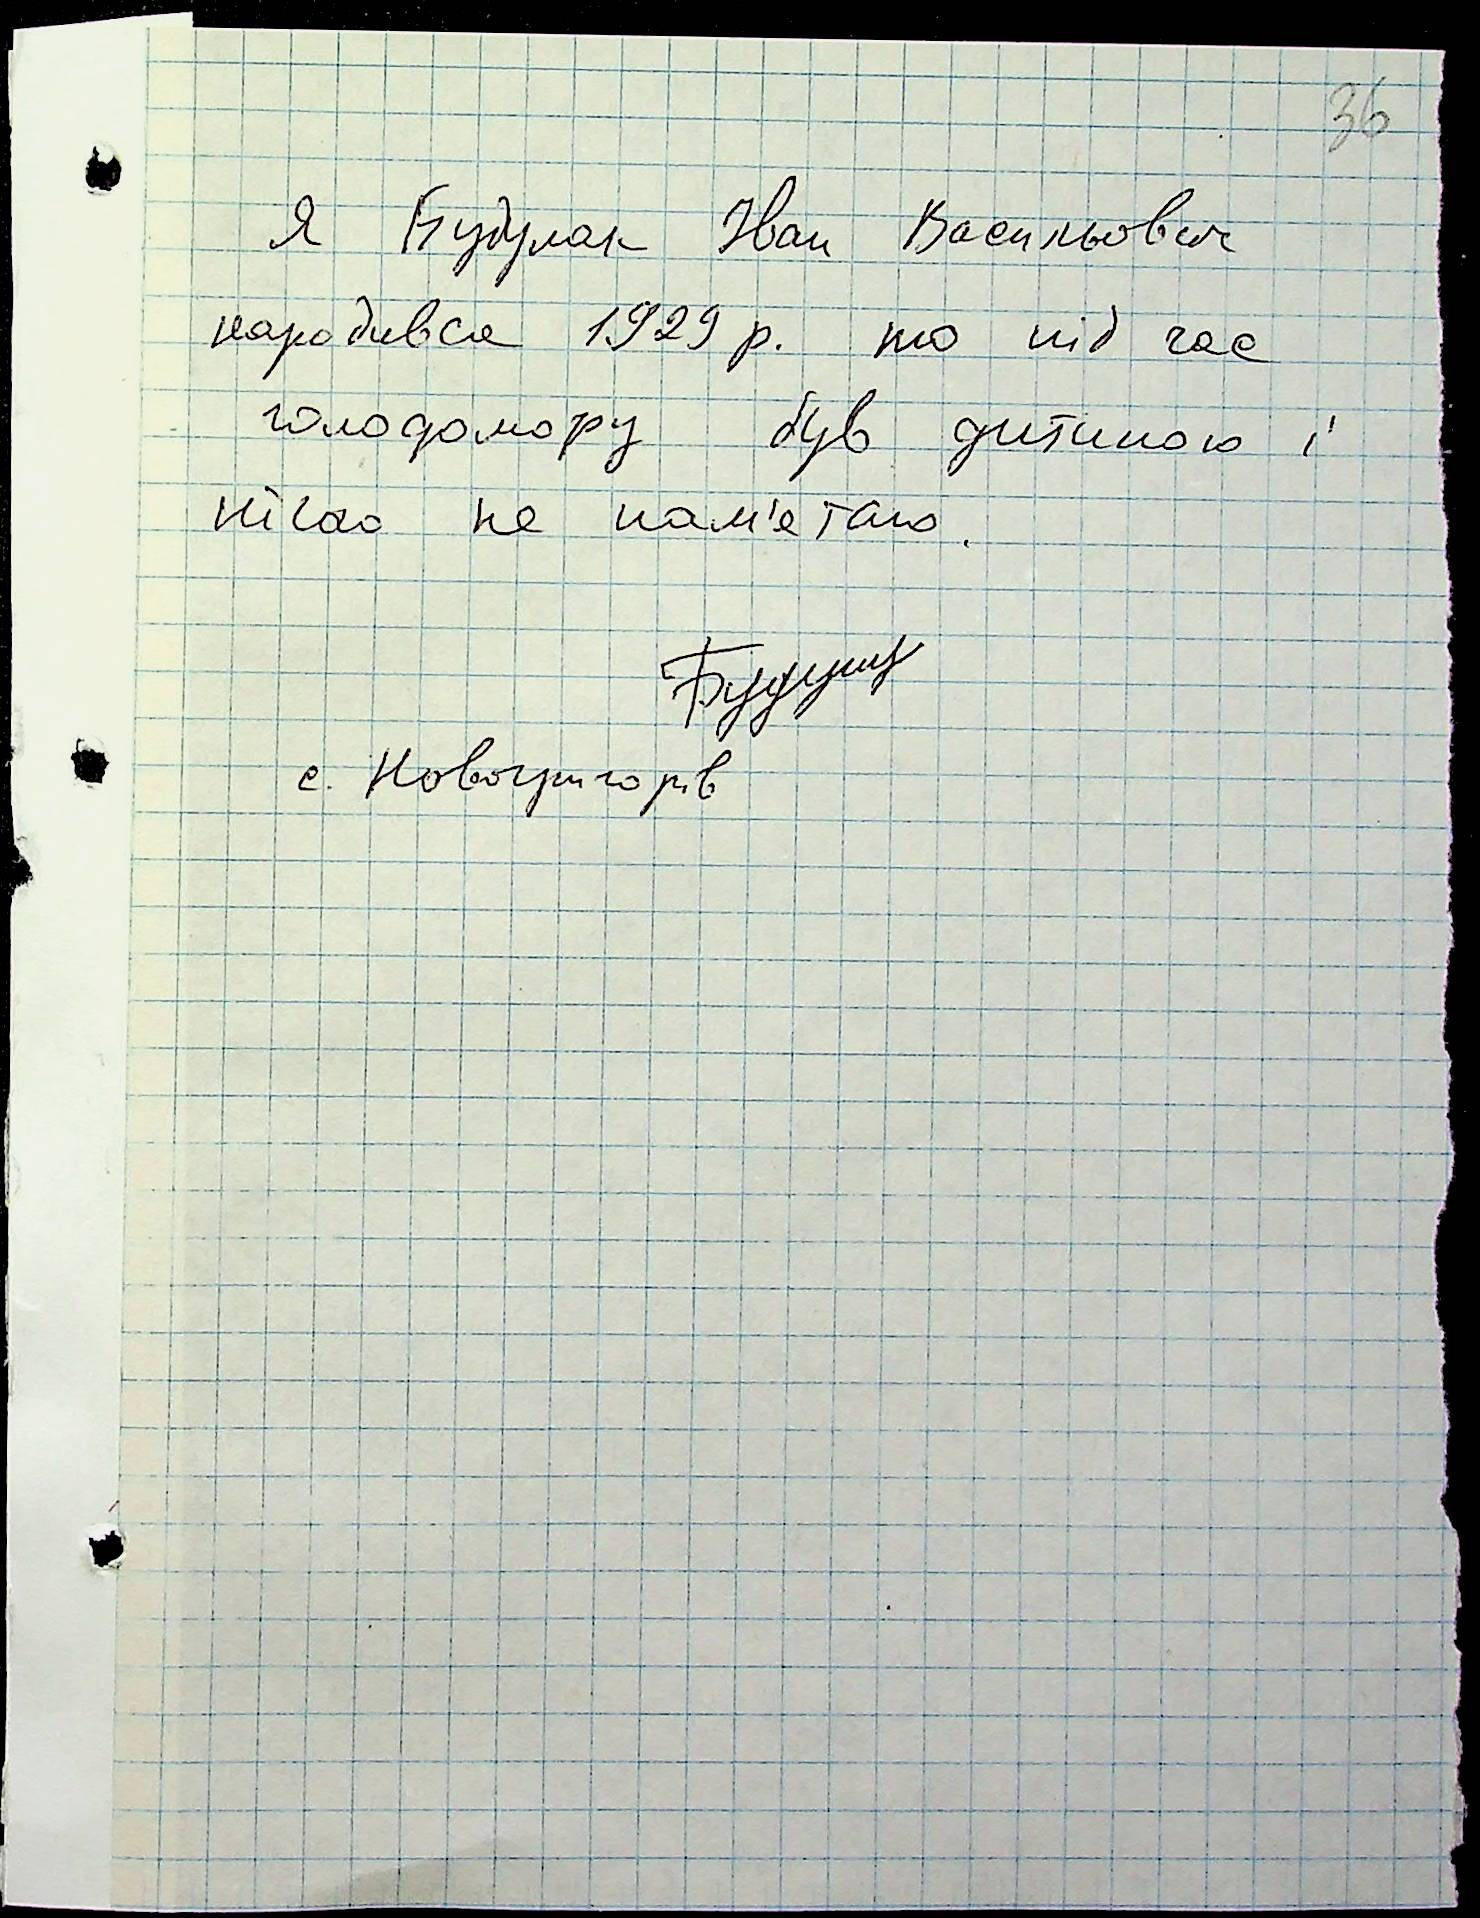 36
Я Будулак Іван Васильович
народився 1929 р. то під час
голодомору був дитиною і
нічого не пам'ятаю.
с. Новогригорів